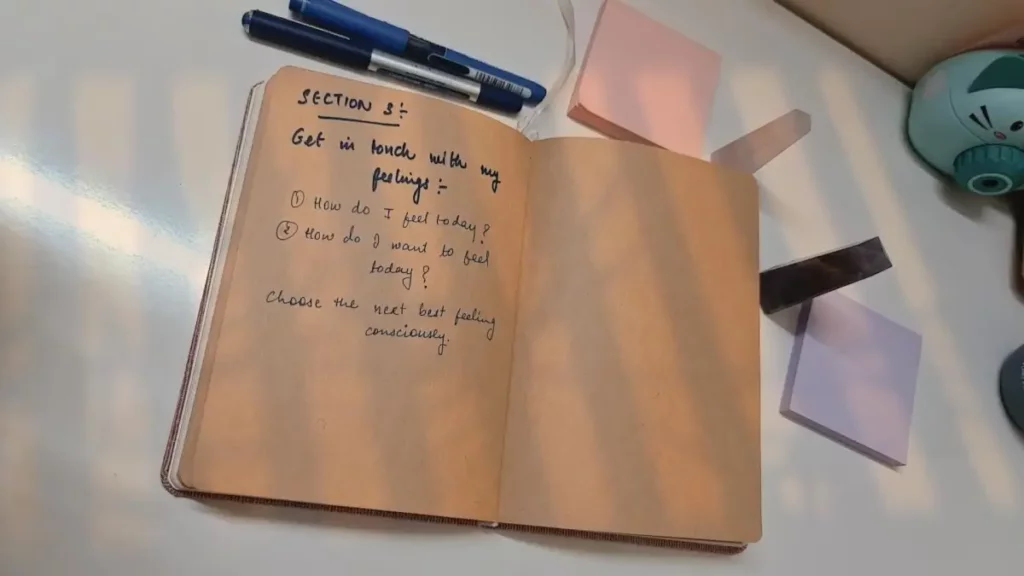 SECTION 3:-
Get in touch with my
feelings:-
① How do I feel today?
② How do I want to feel
today?
Choose the next best feeling
consciously.